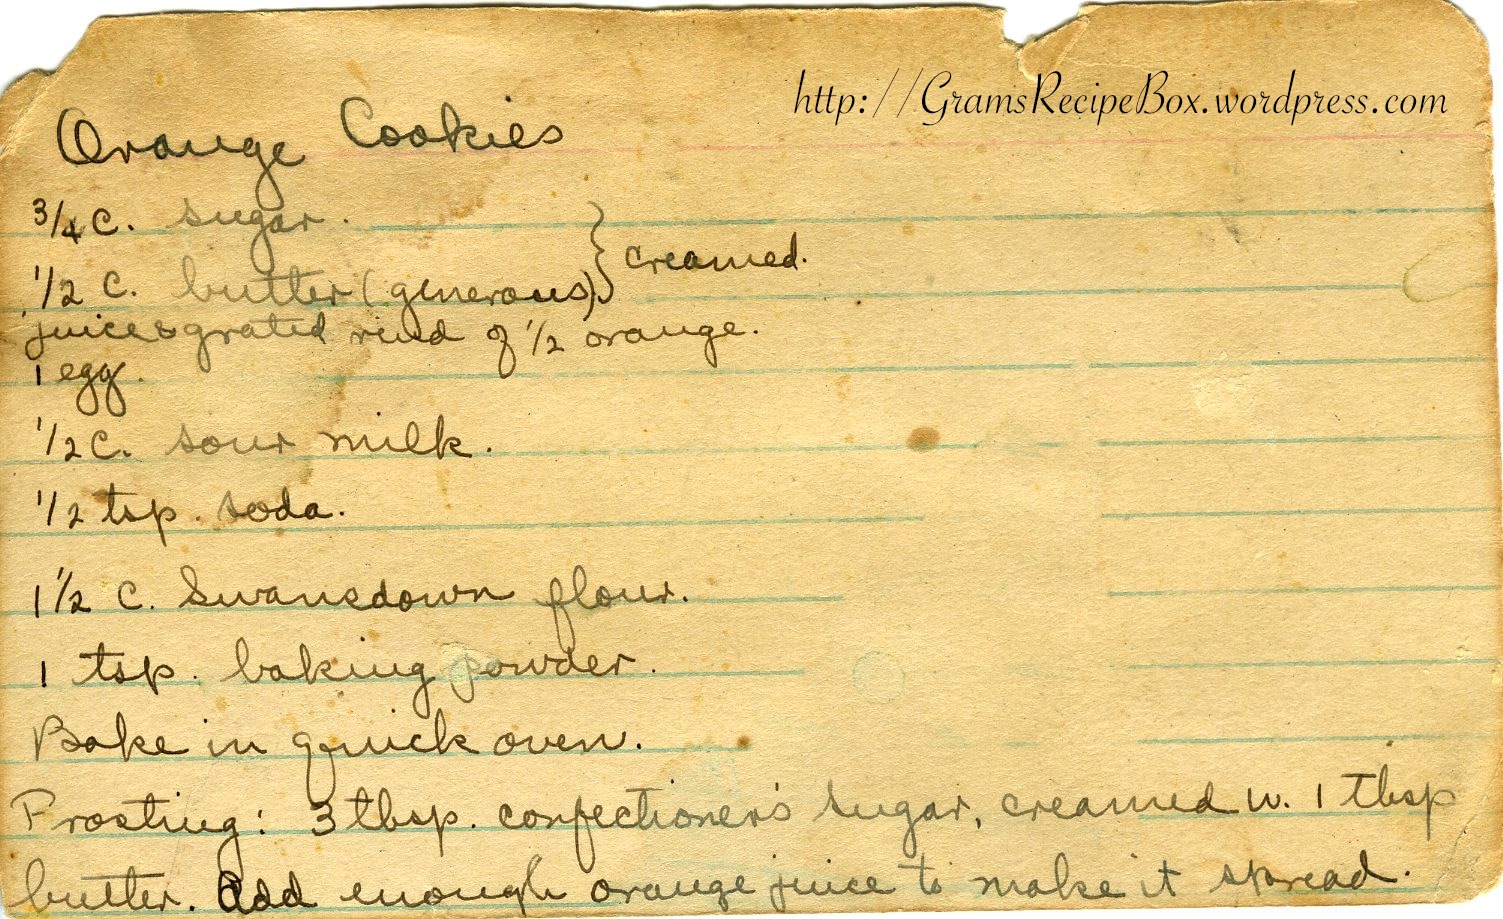 http://GramsRecipeBox.wordpress.com
Orange Cookies
3/4 c. sugar.
1/2 c. butter (generous). } creamed.
juice & grated rind of 1/2 orange.
1 egg.
1/2 c. sour milk.
1/2 tsp. soda.
1 1/2 c. Swansdown flour.
1 tsp. baking powder.
Bake in quick oven.
Frosting: 3 tbsp. confectioner's sugar, creamed w. 1 tbsp
butter. Add enough orange juice to make it spread.